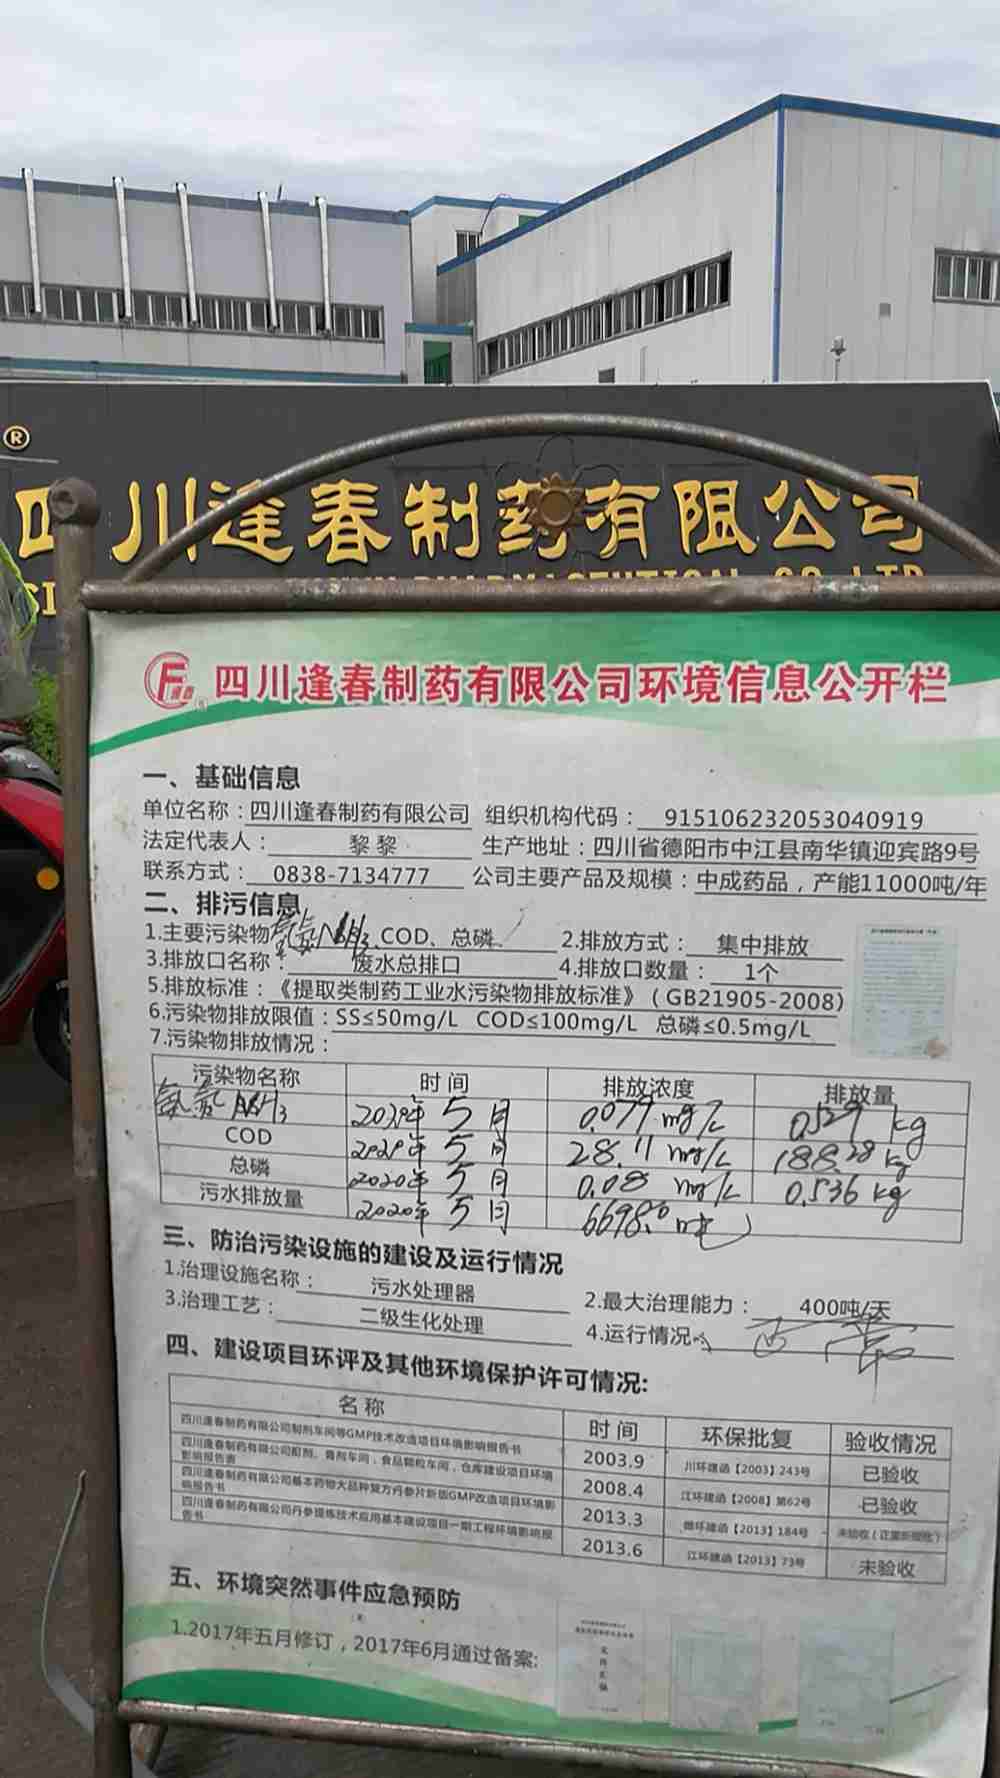 ®
四川逢春制药有限公司
PHARMACEUTICAL CO.,LTD
F 逢春 四川逢春制药有限公司环境信息公开栏
一、基础信息
单位名称：四川逢春制药有限公司 组织机构代码：915106232053040919
法定代表人：黎黎 生产地址：四川省德阳市中江县南华镇迎宾路9号
联系方式：0838-7134777 公司主要产品及规模：中成药品，产能11000吨/年
二、排污信息
1.主要污染物 氨氮NH3、COD、总磷 2.排放方式：集中排放
3.排放口名称：废水总排口 4.排放口数量：1个
5.排放标准：《提取类制药工业水污染物排放标准》（GB21905-2008）
6.污染物排放限值：SS≤50mg/L COD≤100mg/L 总磷≤0.5mg/L
7.污染物排放情况：
污染物名称 时间 排放浓度 排放量
氨氮NH3 2020年5月 0.079mg/L 0.529kg
COD 2020年5月 28.11mg/L 188.28kg
总磷 2020年5月 0.08mg/L 0.536kg
污水排放量 2020年5月 6698.0吨
三、防治污染设施的建设及运行情况
1.治理设施名称：污水处理器 2.最大治理能力：400吨/天
3.治理工艺：二级生化处理 4.运行情况：正常
四、建设项目环评及其他环境保护许可情况:
名称 时间 环保批复 验收情况
四川逢春制药有限公司制剂车间等GMP技术改造项目环境影响报告书 2003.9 川环建函【2003】243号 已验收
四川逢春制药有限公司酊剂、膏剂车间，食品颗粒车间，仓库建设项目环境影响报告表 2008.4 江环建函【2008】第62号 已验收
四川逢春制药有限公司基本药物大品种复方丹参片新版GMP改造项目环境影响报告书 2013.3 德环建函【2013】184号 未验收（正重新报批）
四川逢春制药有限公司丹参提炼技术应用基本建设项目一期工程环境影响报告书 2013.6 江环建函【2013】73号 未验收
五、环境突然事件应急预防
1.2017年五月修订，2017年6月通过备案: